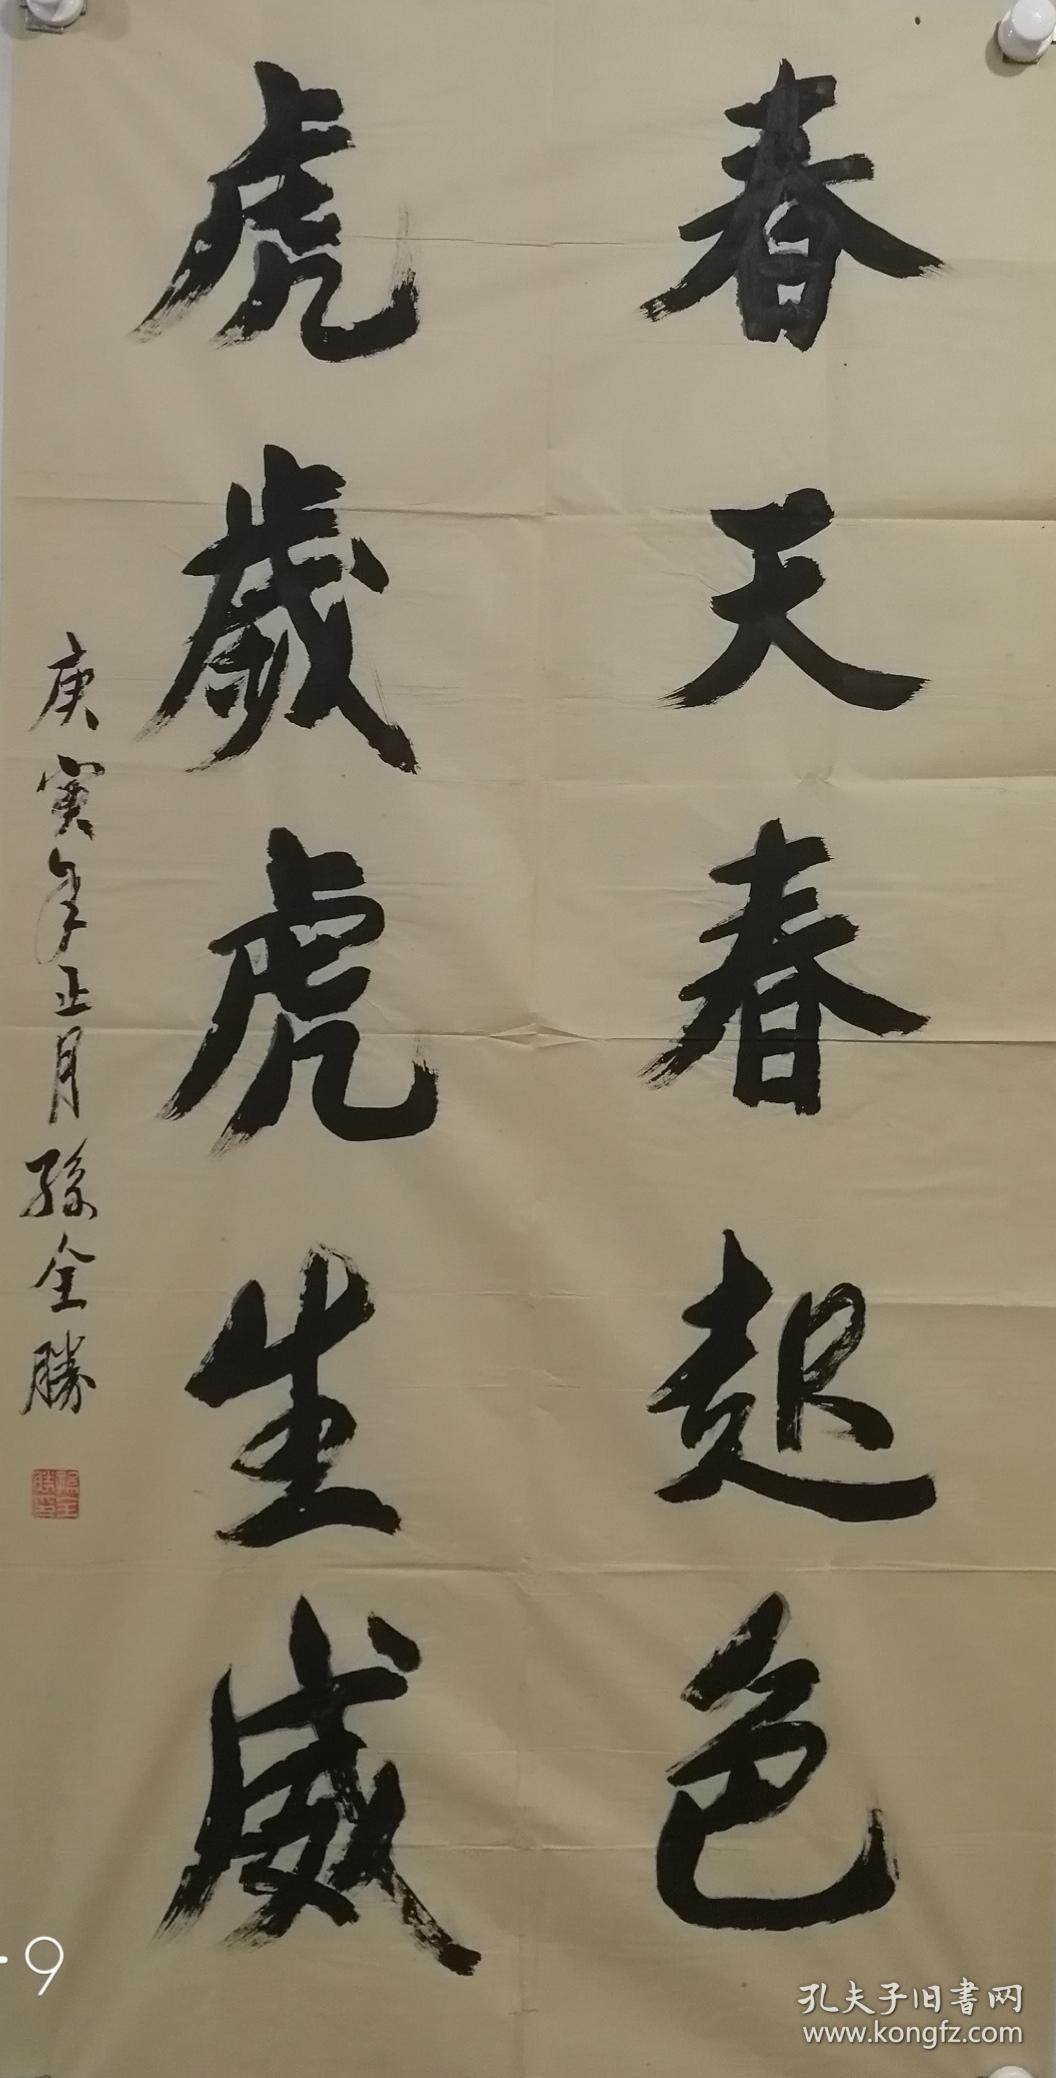 春天春起色
虎歲虎生威
庚寅年正月孫全勝
孫全勝印
9
孔夫子旧書网
www.kongfz.com